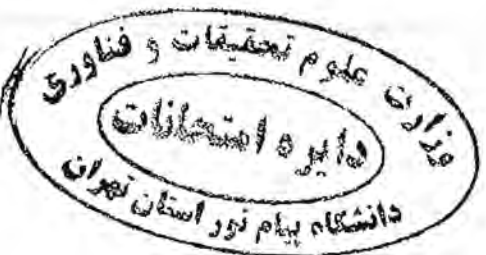 وزارت علوم تحقیقات و فناوری
دایره امتحانات
دانشگاه پیام نور استان تهران